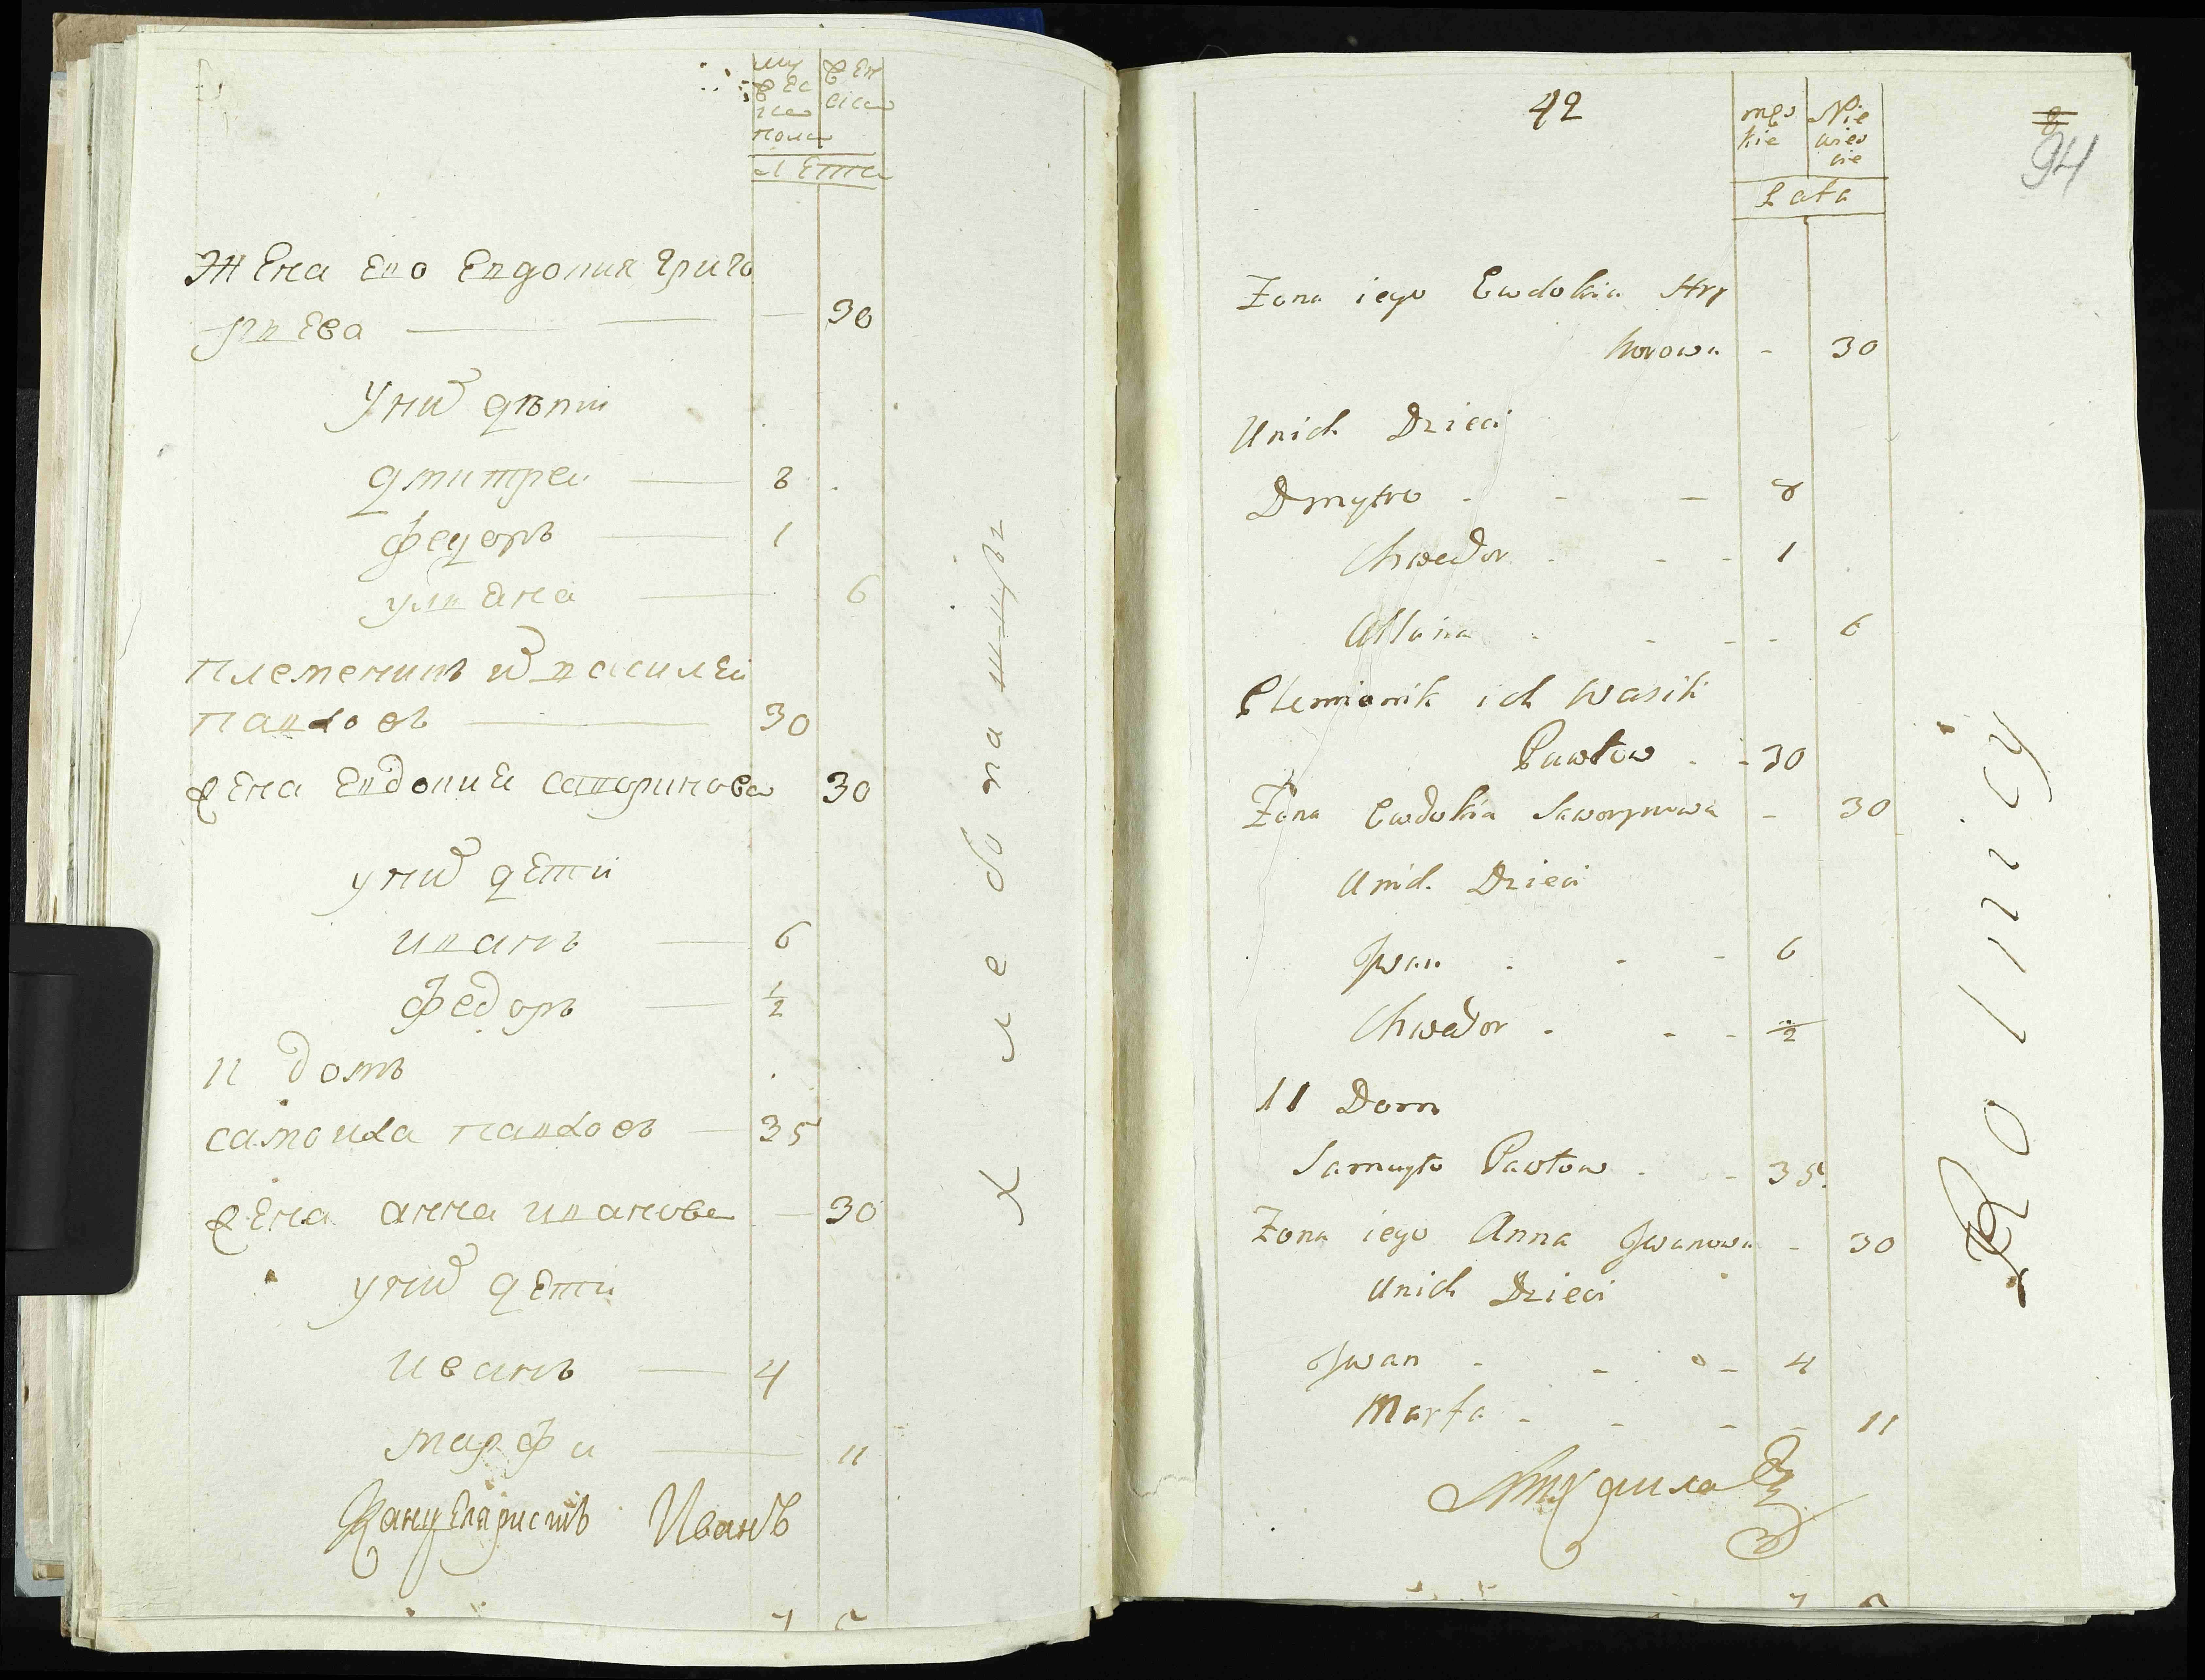 мужеска пола
женска
Лета
Жена его Евдокия Григо
рьева — 30
У них дети
Дмитрей — 8
Федоръ — 1
Ульана — 6
племенникъ их Василей
Павловъ — 30
жена Евдокия Саворинова 30
у них дети
Иванъ — 6
Федоръ — 1/2
11 домъ
Самоила Павловъ — 35
жена анна Иванова — 30
у них дети
Иванъ — 4
Марфа — 11
Канцеляристъ Иванъ
Хлебопашцы
42
męs kie
Nie wieś cie
Lata
94
Żona iego Ewdokia Hry
horowa - 30
Unich Dzieci
Dmytro - - - 8
Chwedor - - - 1
Ullana - - - 6
Plemianik ich Wasil
Pawłow - - 30
Żona Ewdokia Saworynowa - 30
Unich Dzieci
Jwan - - - 6
Chwedor - - - 1/2
11 Dom
Samuyło Pawłow - - 35
Żona iego Anna Jwanowa - 30
Unich Dzieci
Jwan - - - 4
Marfa - - - - 11
Rolnicy